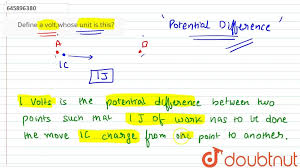 645896380
Define a volt, whose unit is this?
'Potential Difference'
A
B
1C
1J
1 Volts is the potential difference between two
points such that 1J of work has to be done
the move 1C charge from one point to another.
doubtnut